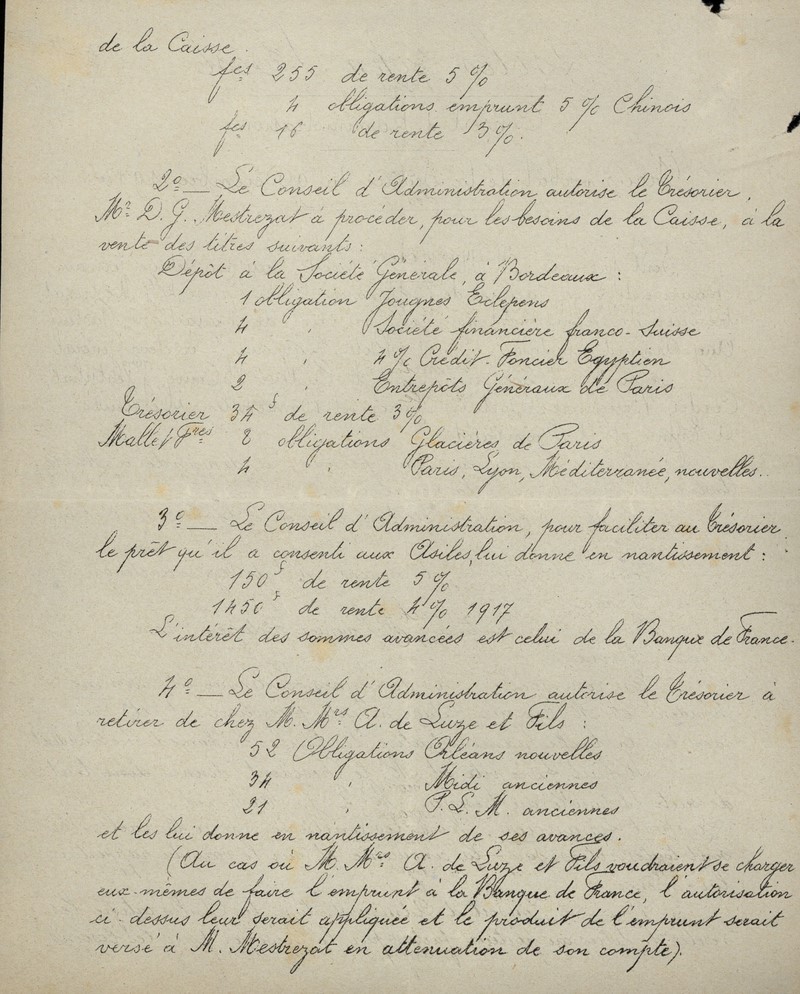 de la Caisse.
fcs 255 de rente 5 %
4 obligations emprunt 5 % Chinois
fcs 16 de rente 3 %.
2º — Le Conseil d'Administration autorise le Trésorier,
Mr D. G. Mestrezat à procéder, pour les besoins de la Caisse, à la
vente des titres suivants :
Dépôt à la Société Générale, à Bordeaux :
1 obligation Jougnes Eclepens
4 " Société financière franco-suisse
4 " 4 % Crédit-Foncier Egyptien
2 " Entrepôts Généraux de Paris
Trésorier 34 f de rente 3 %
Mallet Fres 2 obligations Glacières de Paris
4 " Paris, Lyon, Méditerranée, nouvelles.
3º — Le Conseil d'Administration, pour faciliter au Trésorier
le prêt qu'il a consenti aux Asiles, lui donne en nantissement :
150 f de rente 5 %
1450 f de rente 4 % 1917
L'intérêt des sommes avancées est celui de la Banque de France.
4º — Le Conseil d'Administration autorise le Trésorier à
retirer de chez M. Mrs A. de Luze et Fils :
52 Obligations Orléans nouvelles
34 " Midi anciennes
21 " P. L. M. anciennes
et les lui donne en nantissement de ses avances.
(Au cas où M. Mrs A. de Luze et Fils voudraient se charger
eux-mêmes de faire l'emprunt à la Banque de France, l'autorisation
ci-dessus leur serait appliquée et le produit de l'emprunt serait
versé à M. Mestrezat en attenuation de son compte).